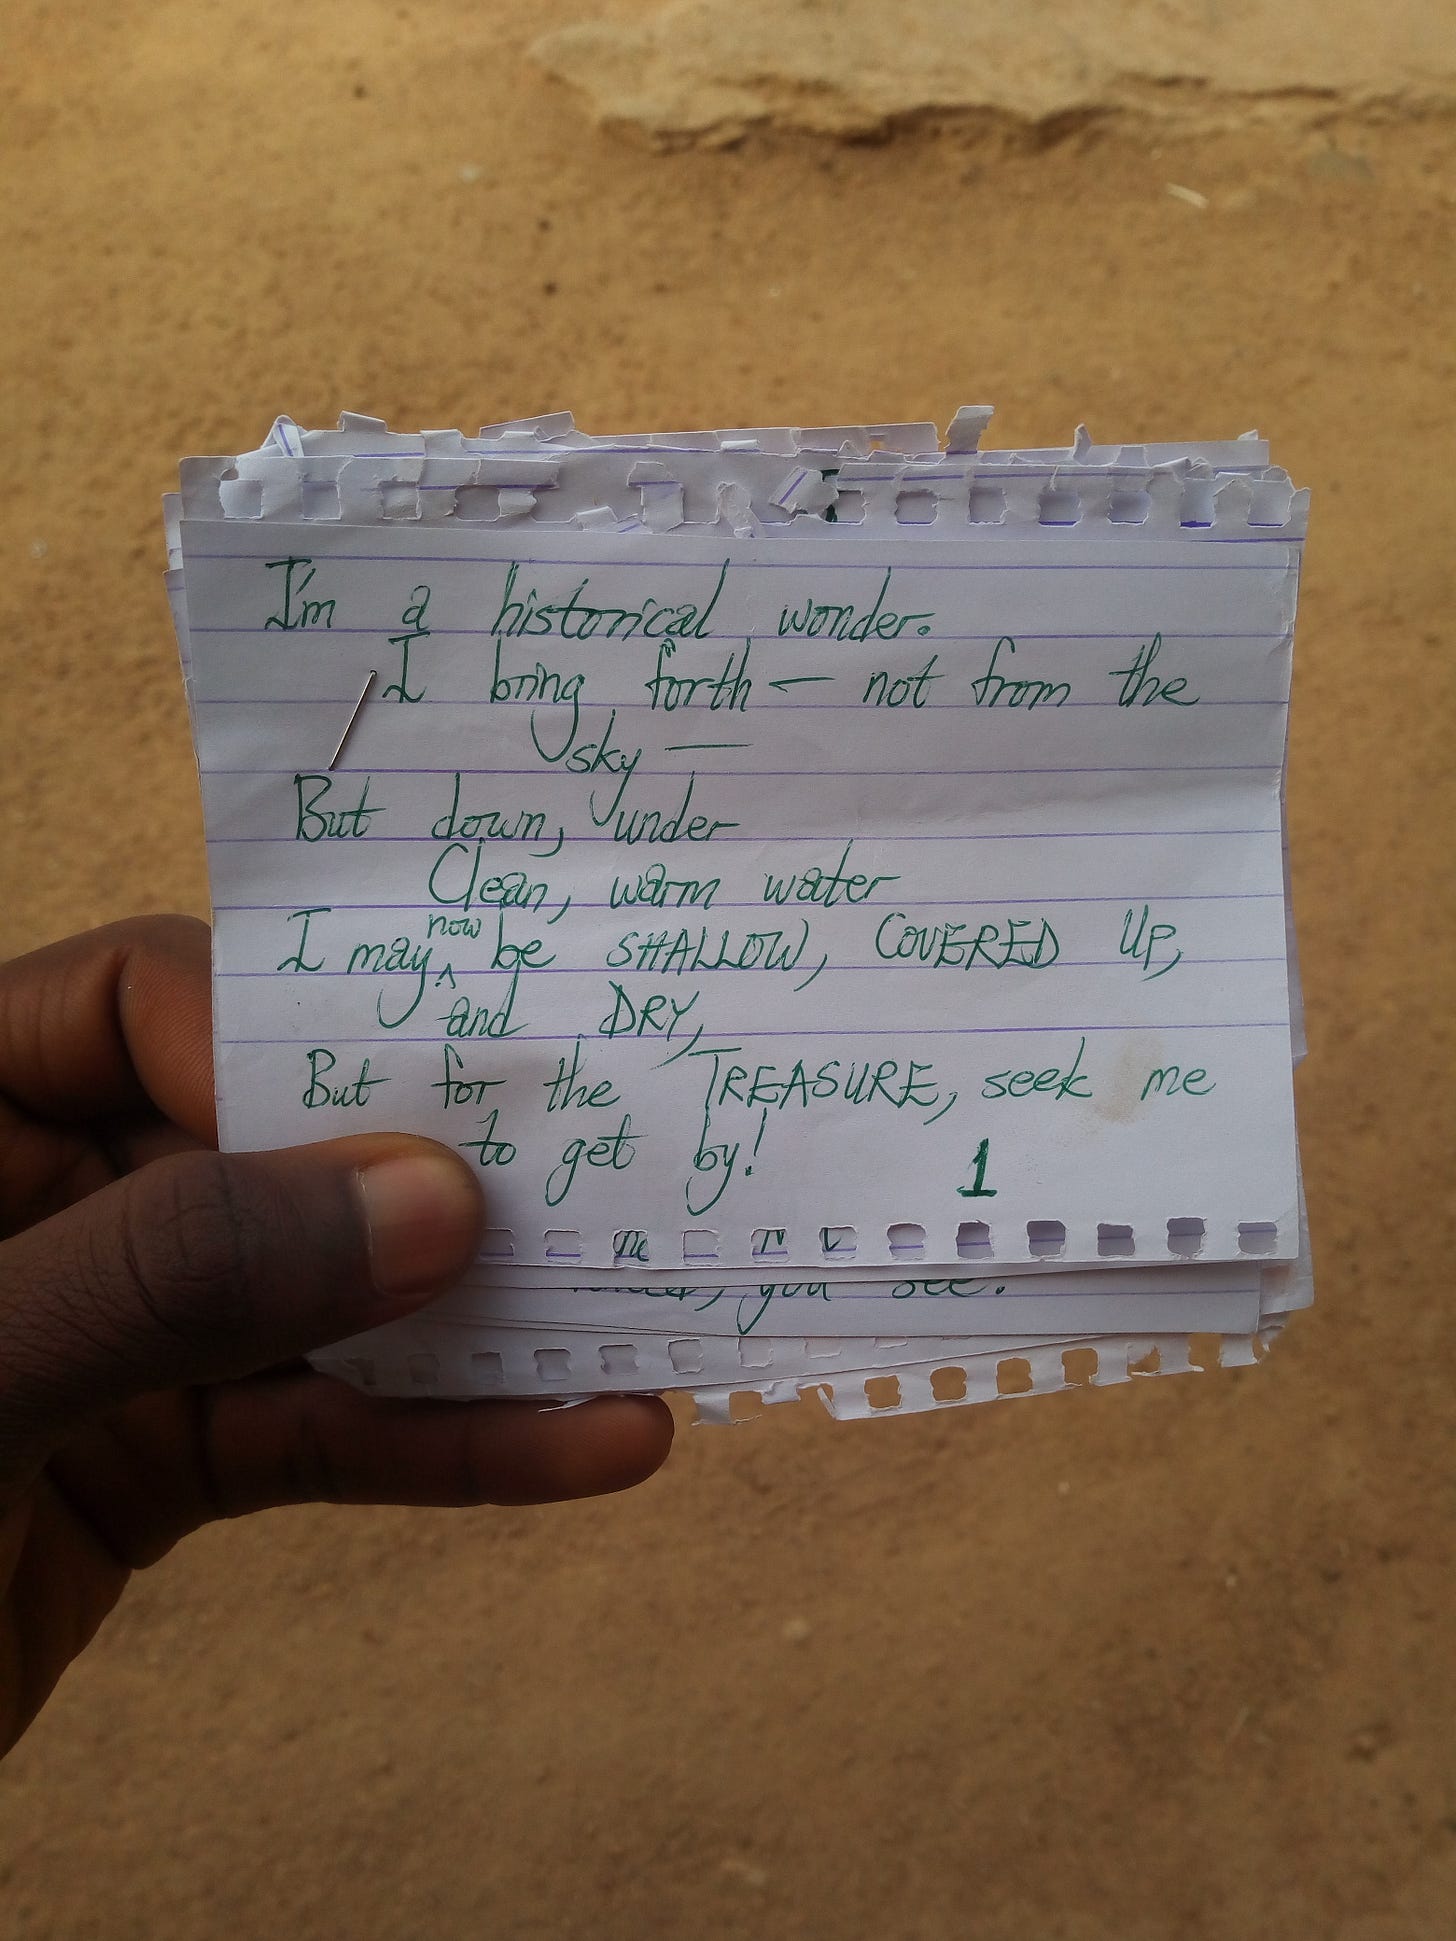 I'm a historical wonder.
I bring forth — not from the
sky —
But down, under
Clean, warm water
I may now be SHALLOW, COVERED UP,
and DRY,
But for the TREASURE, seek me
to get by!
1
you see.